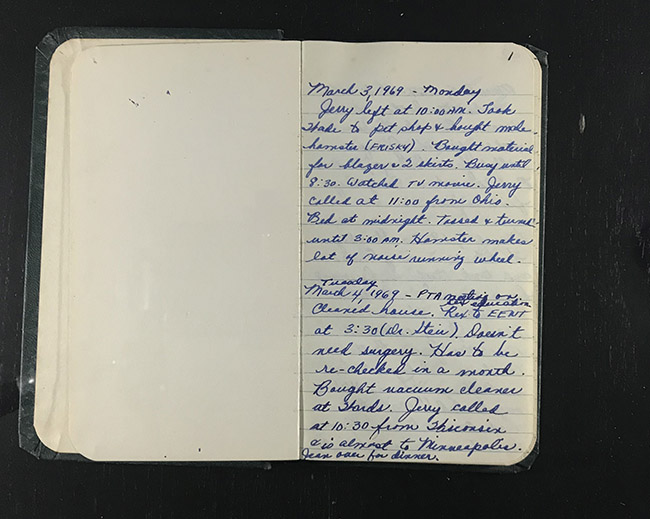 1
March 3, 1969 - Monday
Jerry left at 10:00 AM. Took
to pet shop & bought male
hamster (FRISKY). Bought material
for blazer & 2 skirts. Busy until
8:30. Watched TV movie. Jerry
called at 11:00 from Ohio.
Bed at midnight. Tossed & turned
until 3:00 AM. Hamster makes
lot of noise running wheel.
Tuesday
March 4, 1969 - PTA meeting on
sex education
Cleaned house. Rex to EENT
at 3:30 (Dr. Stein). Doesn't
need surgery. Has to be
re-checked in a month.
Bought vacuum cleaner
at Wards. Jerry called
at 10:30 from Wisconsin
& is almost to Minneapolis.
Jean over for dinner.